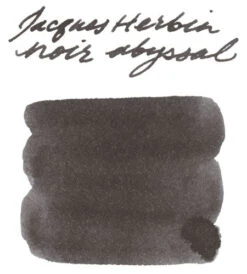 Jacques Herbin
noir abyssal